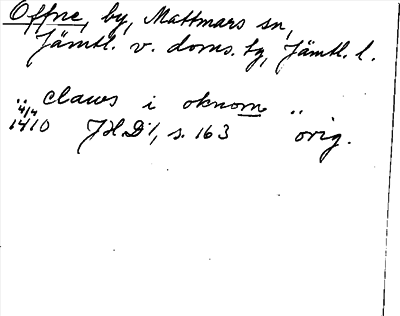 Offne, by, Mattmars sn,
Jämtl. v. doms. tg, Jämtl. l.
.. claws i oknom ..
4/4
1410 JHD 1, s. 163 orig.